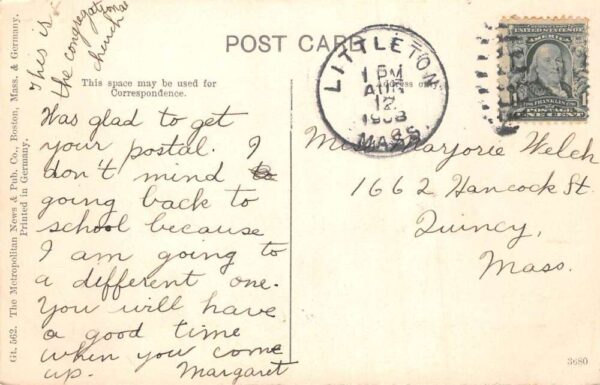 This is
the congregational
church
POST CARD
This space may be used for
Correspondence.
Address only.
Was glad to get
your postal. I
don't mind
going back to
school because
I am going to
a different one.
You will have
a good time
when you come
up. Margaret
LITTLETON
1 PM
12
1908
MASS.
UNITED STATES OF
AMERICA
FRANKLIN
POSTAGE
ONE CENT
Miss Marjorie Welch
1662 Hancock St.
Quincy,
Mass.
Gt. 562. The Metropolitan News & Pub. Co., Boston, Mass. & Germany.
Printed in Germany.
3680